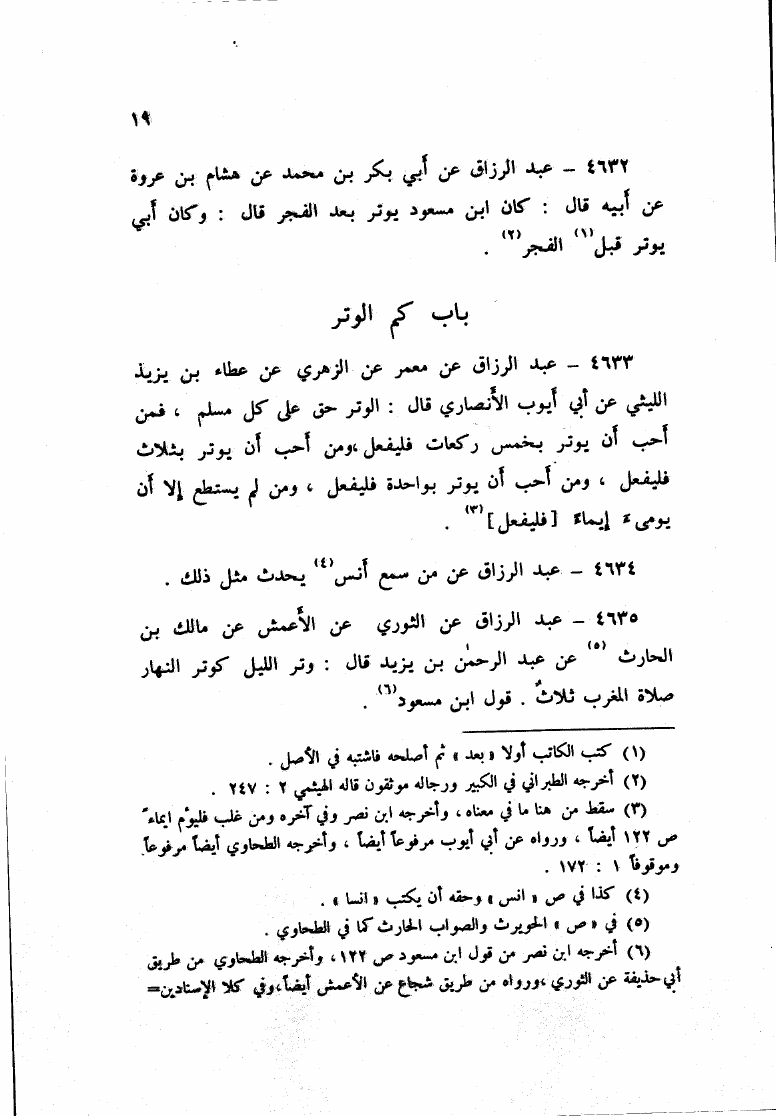 ١٩
٤٦٣٢ – عبد الرزاق عن أبي بكر بن محمد عن هشام بن عروة
عن أبيه قال : كان ابن مسعود يوتر بعد الفجر قال : وكان أبي
يوتر قبل(١) الفجر(٢) .
باب كم الوتر
٤٦٣٣ – عبد الرزاق عن معمر عن الزهري عن عطاء بن يزيد
الليثي عن أبي أيوب الأنصاري قال : الوتر حق على كل مسلم ، فمن
أحب أن يوتر بخمس ركعات فليفعل، ومن أحب أن يوتر بثلاث
فليفعل ، ومن أحب أن يوتر بواحدة فليفعل ، ومن لم يستطع إلا أن
يومىء إيماءً [فليفعل](٣) .
٤٦٣٤ – عبد الرزاق عن من سمع أنس(٤) يحدث مثل ذلك .
٤٦٣٥ – عبد الرزاق عن الثوري عن الأعمش عن مالك بن
الحارث(٥) عن عبد الرحمٰن بن يزيد قال : وتر الليل كوتر النهار
صلاة المغرب ثلاثٌ . قول ابن مسعود(٦) .
(١) كتب الكاتب أولا «بعد» ثم أصلحه فاشتبه في الأصل .
(٢) أخرجه الطبراني في الكبير ورجاله موثقون قاله الهيثمي ٢ : ٢٤٧ .
(٣) سقط من هنا ما في معناه ، وأخرجه ابن نصر وفي آخره ومن غلب فليؤم ايماءً
ص ١٢٢ أيضاً ، ورواه عن أبي أيوب مرفوعاً أيضاً ، وأخرجه الطحاوي أيضاً مرفوعاً
وموقوفاً ١ : ١٧٢ .
(٤) كذا في ص «انس» وحقه أن يكتب «انسا» .
(٥) في «ص» الحويرث والصواب الحارث كما في الطحاوي .
(٦) أخرجه ابن نصر من قول ابن مسعود ص ١٢٢، وأخرجه الطحاوي من طريق
أبي حذيفة عن الثوري ،ورواه من طريق شجاع عن الأعمش أيضاً،وفي كلا الإسنادين=